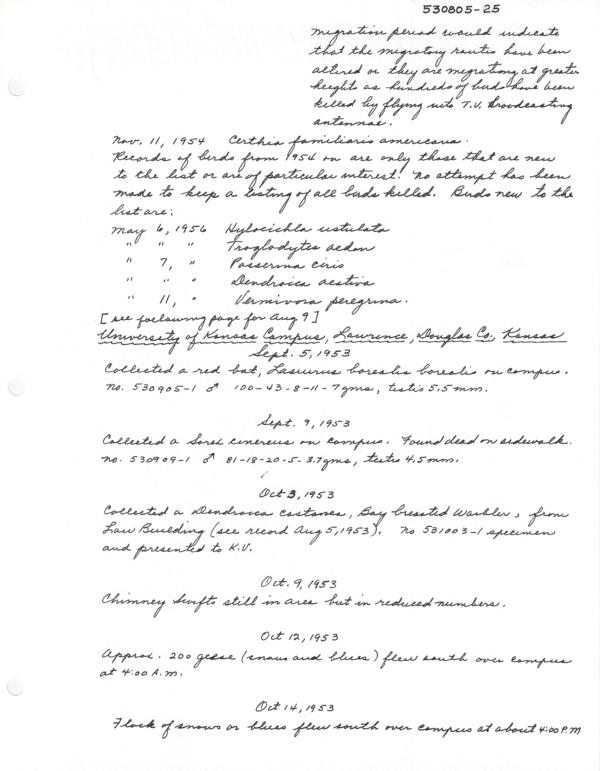 530805-25
migration period would indicate
that the migratory routes have been
altered or they are migrationg at greater
heights as hundreds of birds have been
killed by flying into T.V. broadcasting
antennae.
Nov. 11, 1954 Certhia familiaris americana.
Records of birds from 1954 on are only those that are new
to the list or are of particular interest. No attempt has been
made to keep a listing of all birds killed. Birds new to the
list are:
May 6, 1956 Hylocichla ustulata
" " " Troglodytes aedon
" 7, " Passerina ciris
" " " Dendroica aestiva
" 11, " Vermivora peregrina.
[see following page for Aug 9]
University of Kansas Campus, Lawrence, Douglas Co., Kansas
Sept. 5, 1953
Collected a red bat, Lasiurus borealis borealis on campus.
No. 530905-1 ♂ 100-43-8-11-7gms, testis 5.5mm.
Sept. 9, 1953
Collected a Sorex cinereus on campus. Found dead on sidewalk.
No. 530909-1 ♂ 81-18-20-5-3.7gms, testis 4.5mm.
Oct 3, 1953
Collected a Dendroica castanea, Bay breasted Warbler, from
Law Building (see record Aug 5, 1953). No 531003-1 specimen
and presented to K.U.
Oct. 9, 1953
Chimney Swifts still in area but in reduced numbers.
Oct 12, 1953
Approx. 200 geese (snows and blues) flew south over campus
at 4:00 A.m.
Oct 14, 1953
Flock of snows or blues flew south over campus at about 4:00 P.M